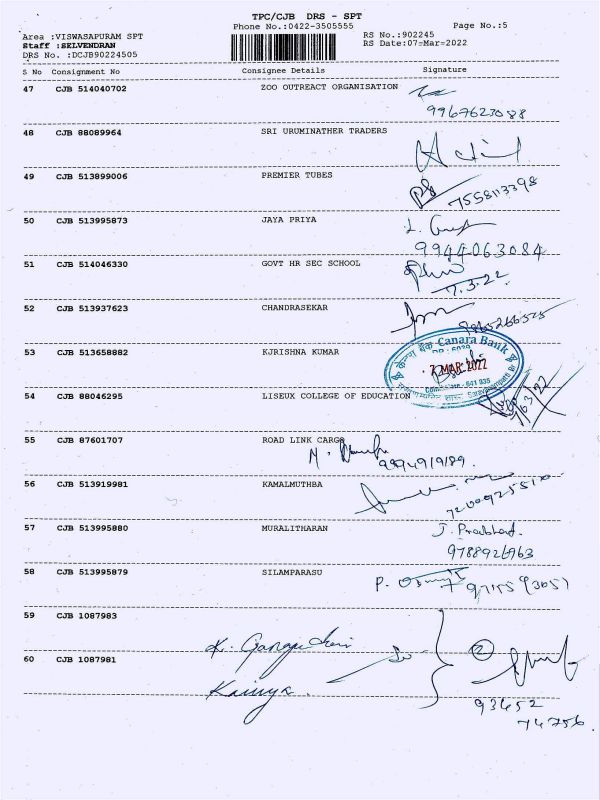 TPC/CJB DRS - SPT
Phone No.:0422-3505555
Page No.:5
Area :VISWASAPURAM SPT
RS No.:902245
Staff :SELVENDRAN
RS Date:07=Mar=2022
DRS No. :DCJB90224505
S No Consignment No Consignee Details Signature
47 CJB 514040702 ZOO OUTREACT ORGANISATION
9967623088
48 CJB 88089964 SRI URUMINATHER TRADERS
49 CJB 513899006 PREMIER TUBES
7558113398
50 CJB 513995873 JAYA PRIYA
9944063084
51 CJB 514046330 GOVT HR SEC SCHOOL
7.3.22
52 CJB 513937623 CHANDRASEKAR
9865266525
53 CJB 513658882 KJRISHNA KUMAR
केनरा बैंक Canara Bank
7 MAR 2022
54 CJB 88046295 LISEUX COLLEGE OF EDUCATION
55 CJB 87601707 ROAD LINK CARGO
56 CJB 513919981 KAMALMUTHBA
57 CJB 513995880 MURALITHARAN
J. Prabhat.
9788926963
58 CJB 513995879 SILAMPARASU
59 CJB 1087983
60 CJB 1087981
2
93652
74756.